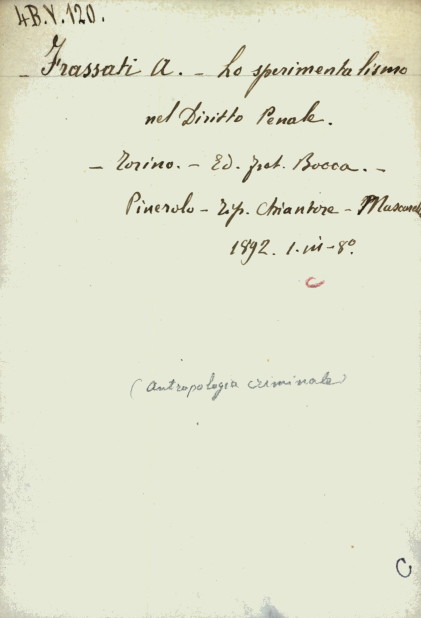 4B.V.120.
– Frassati A. – Lo sperimentalismo
nel Diritto Penale.
– Torino. – Ed. frat. Bocca. –
Pinerolo – Tip. Chiantore – Mascarelli
1892. 1. in – 8º.
(Antropologia criminale)
C